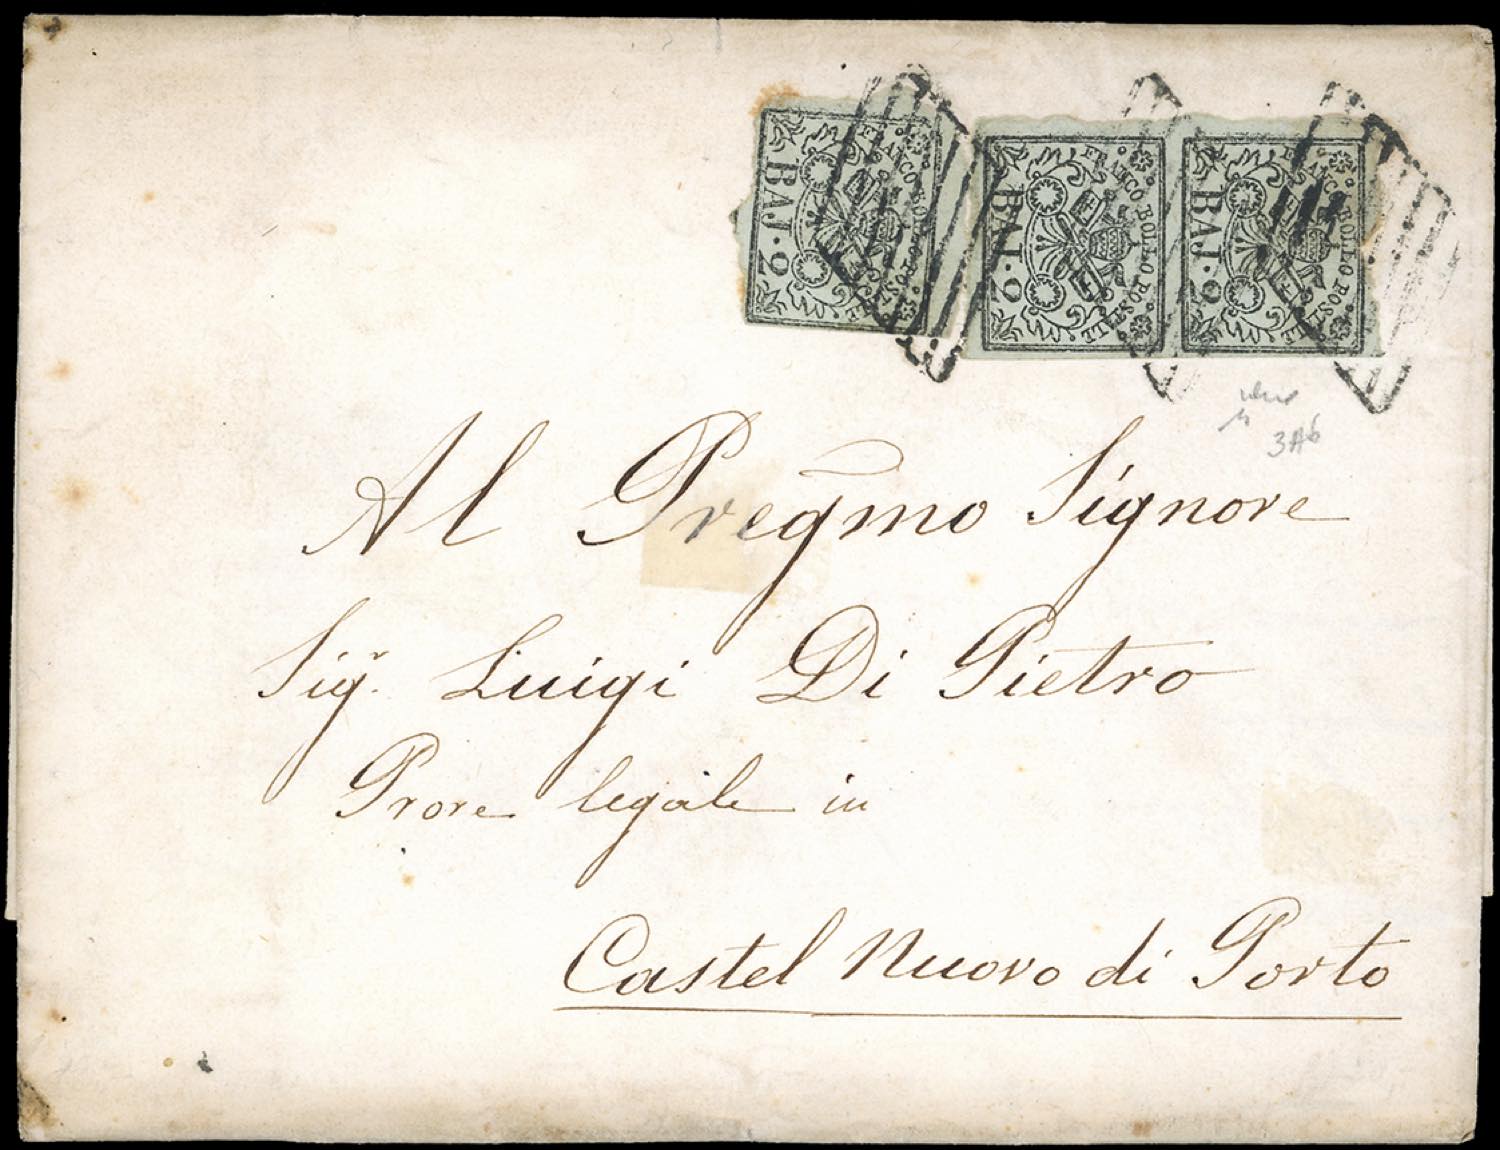 FRANCO BOLLO POSTALE
BAJ·2
FRANCO BOLLO POSTALE
BAJ·2
FRANCO BOLLO POSTALE
BAJ·2
3A6
Al Pregmo Signore
Sigr. Luigi Di Pietro
Prore legale in
Castel Nuovo di Porto